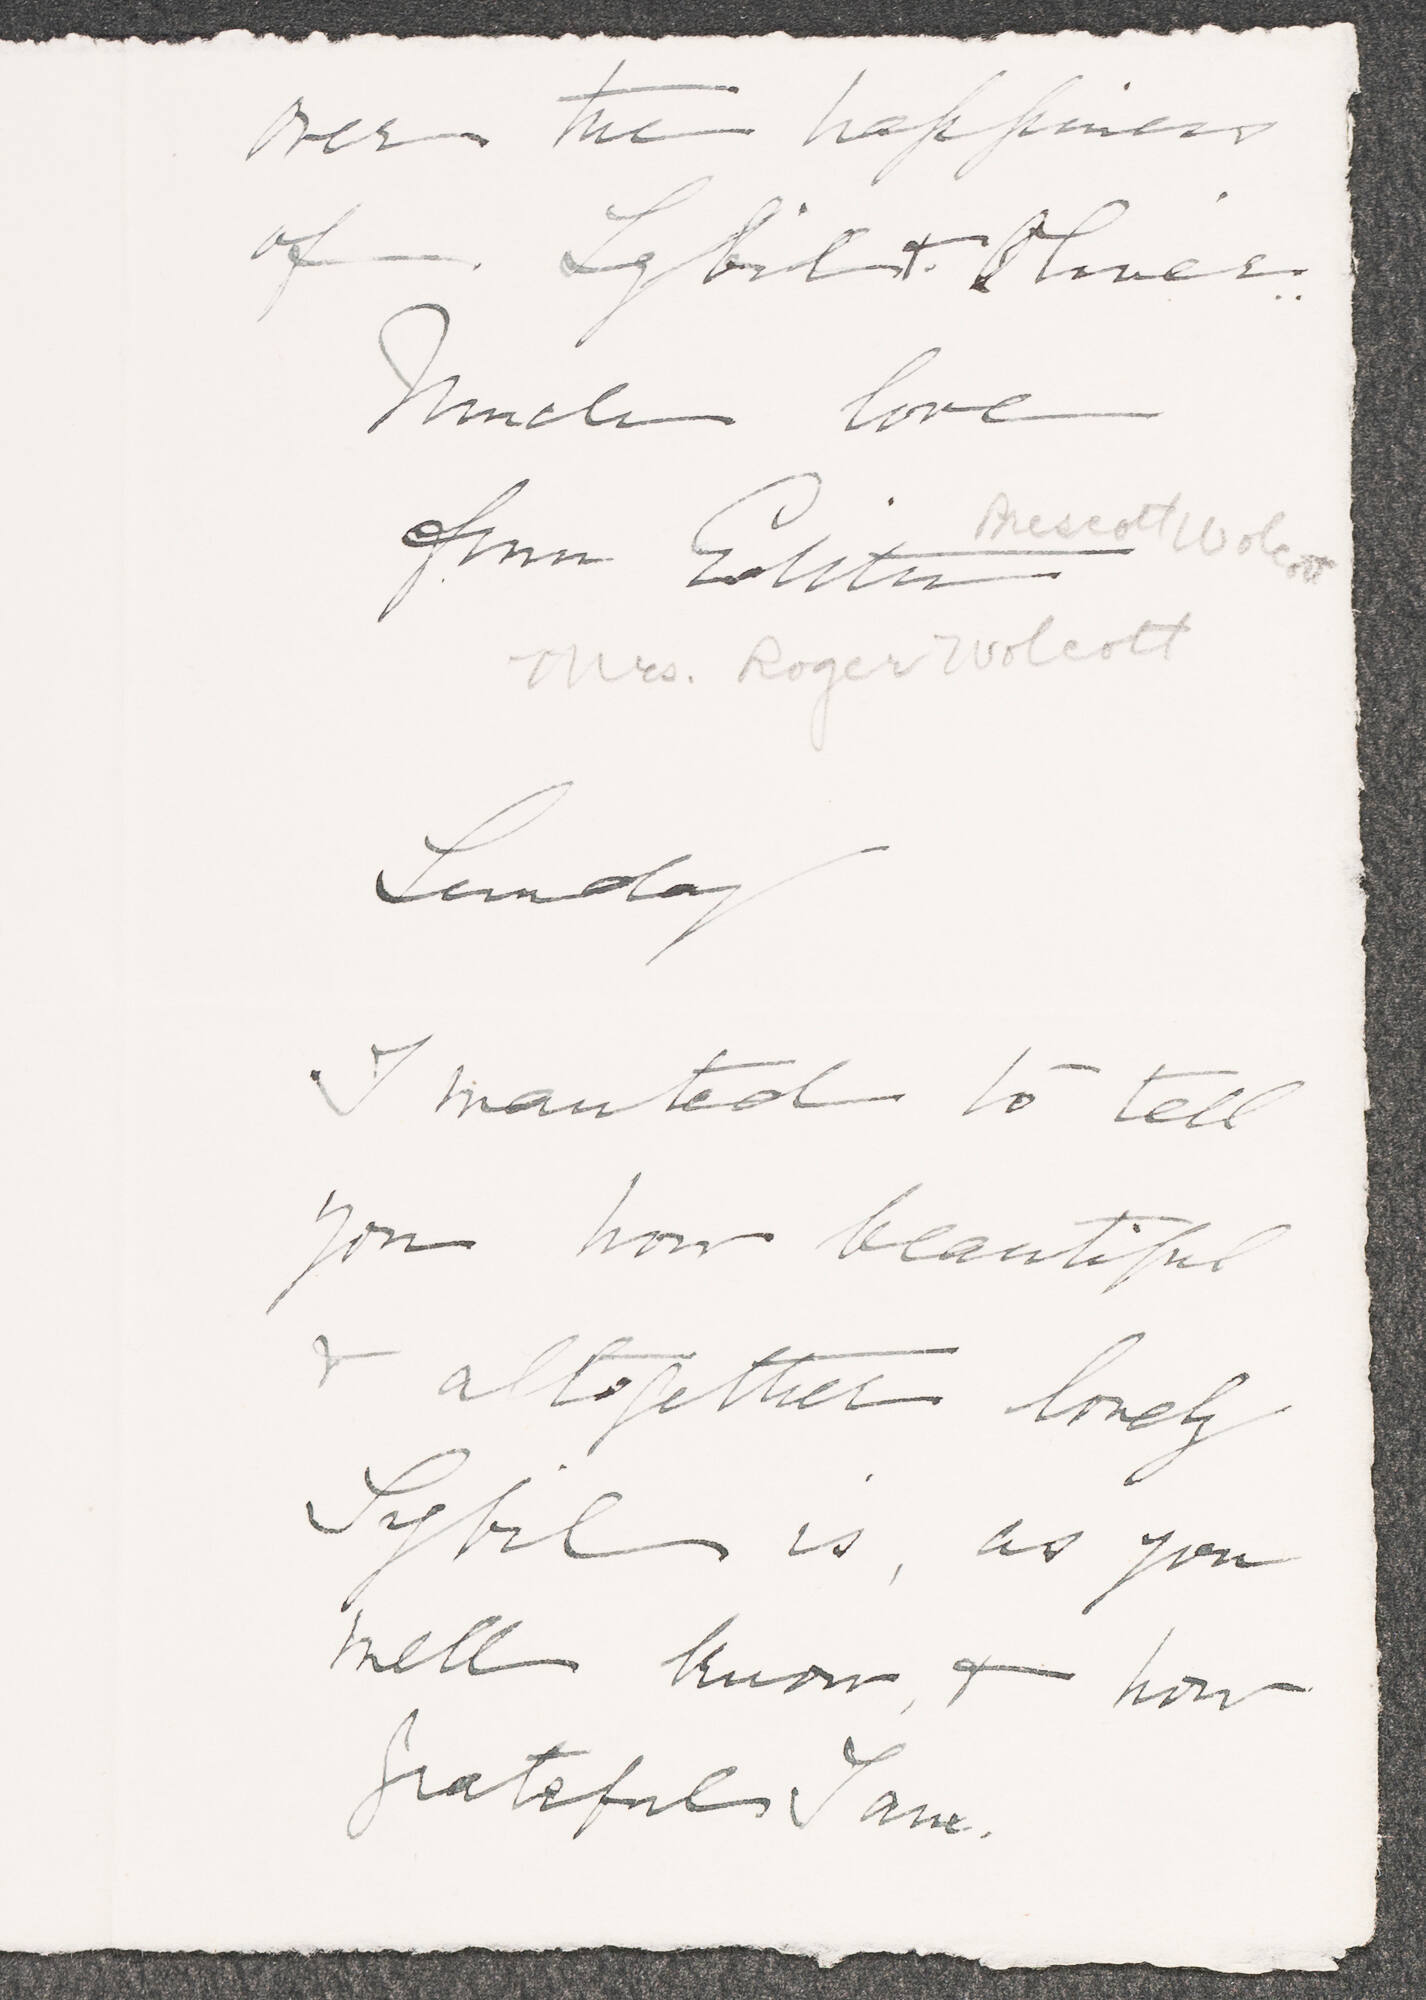 over the happiness
of Sybil & Oliver.
Much love
from Edith Prescott Wolcott
Mrs. Roger Wolcott
Sunday
I wanted to tell
you how beautiful
& altogether lovely
Sybil is, as you
well know, & how
grateful I am.